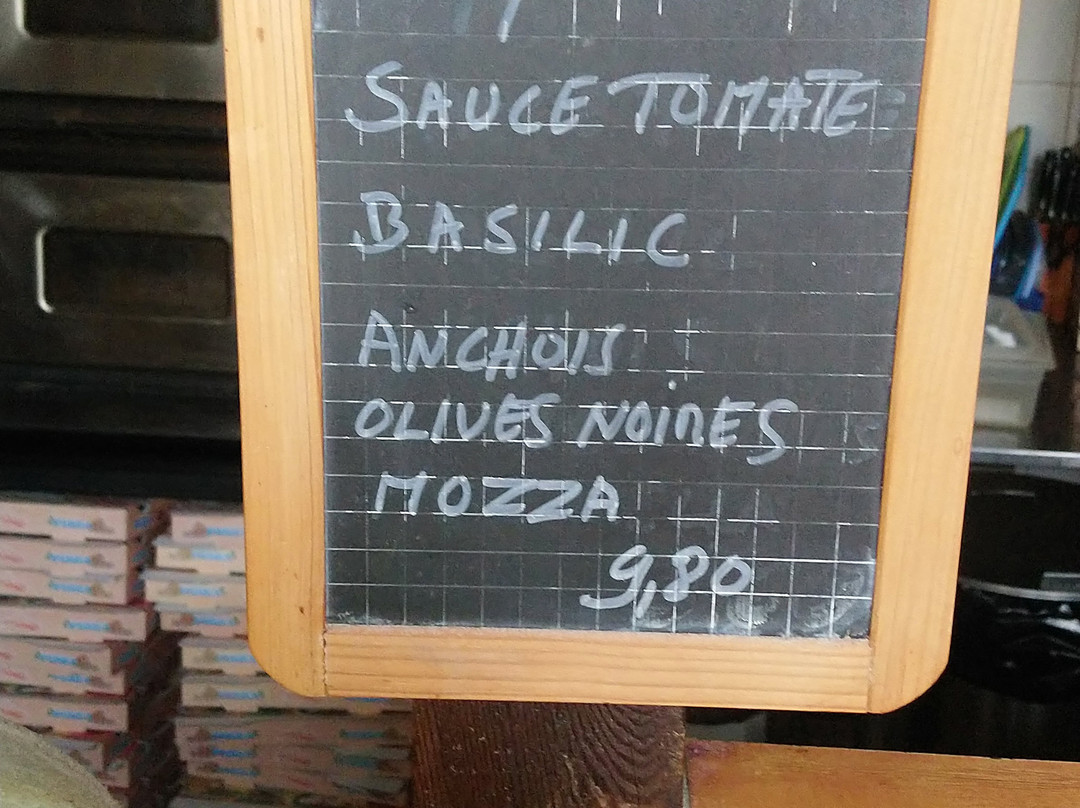 SAUCE TOMATE
BASILIC
ANCHOIS
OLIVES NOIRES
MOZZA
9,80